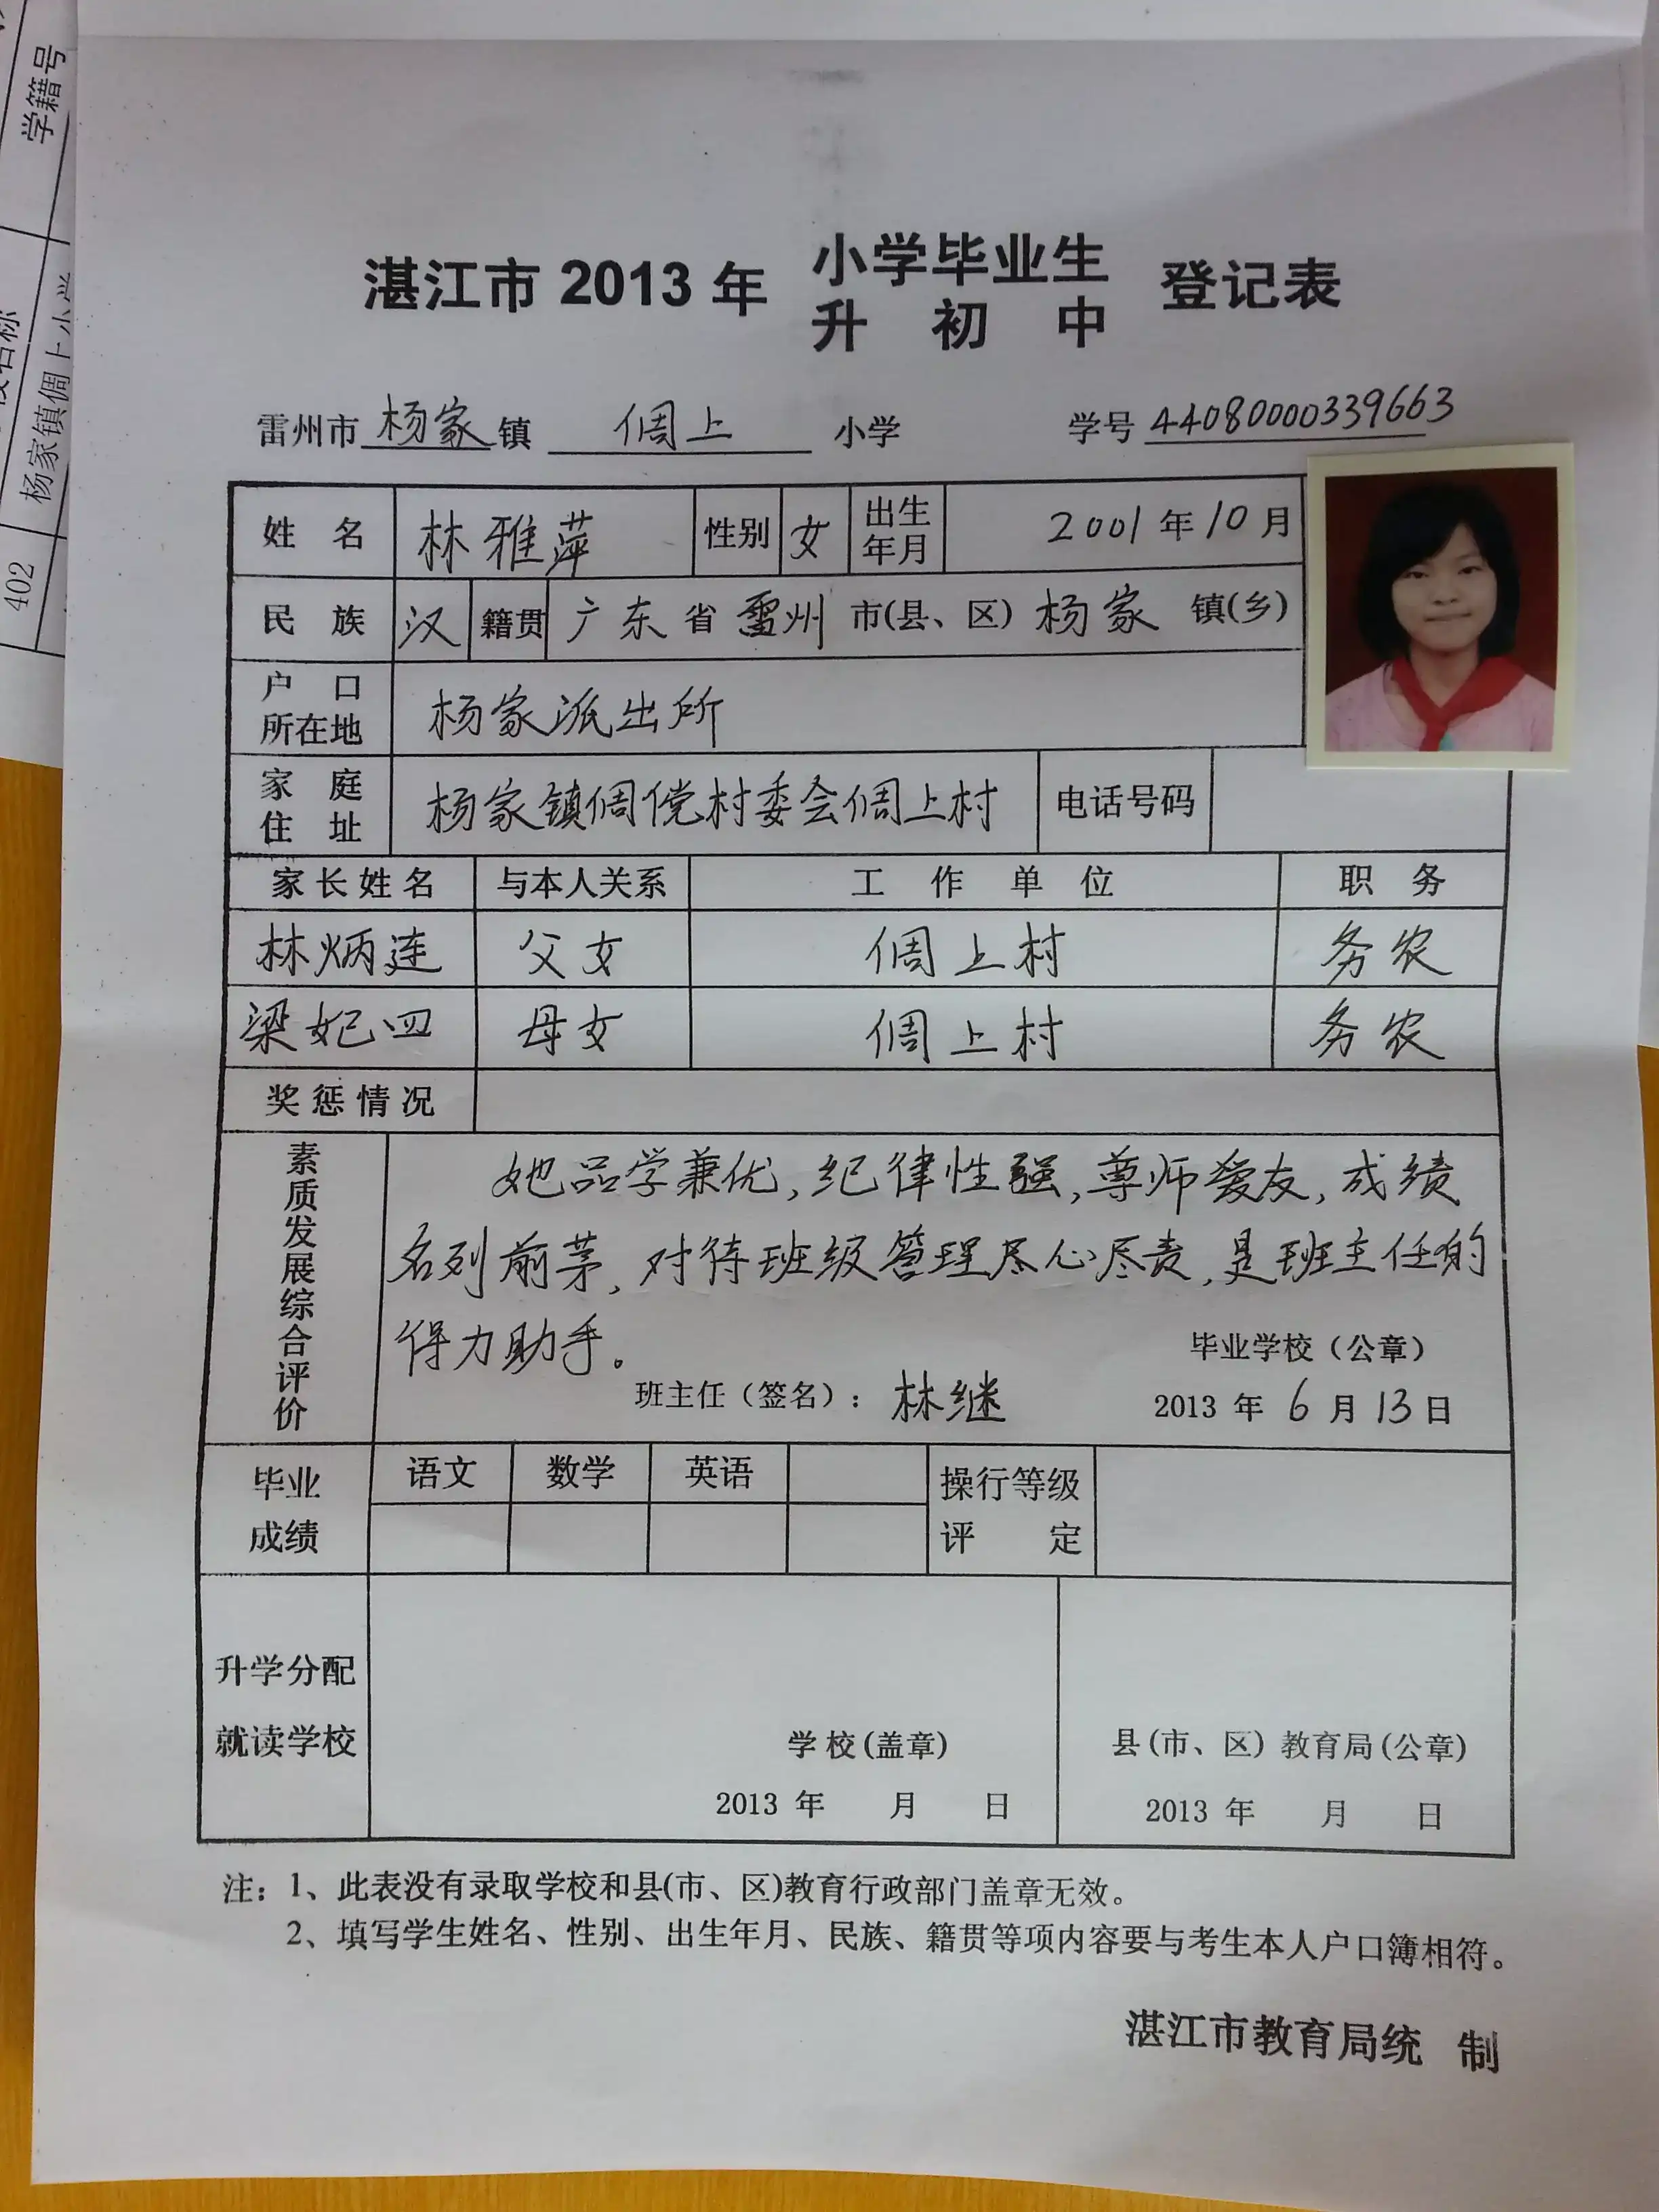 学籍号
杨家镇倜上小学
402
湛江市 2013 年 小学毕业生 登记表
升 初 中
雷州市 杨家 镇 倜上 小学 学号 44080000339663
姓 名 林雅萍 性别 女 出生年月 2001 年 10 月
民 族 汉 籍贯 广东 省 雷州 市(县、区) 杨家 镇(乡)
户 口 所在地 杨家派出所
家 庭 住 址 杨家镇倜傥村委会倜上村 电话号码
家长姓名 与本人关系 工 作 单 位 职 务
林炳连 父女 倜上村 务农
梁妃四 母女 倜上村 务农
奖惩情况
素质发展综合评价
她品学兼优,纪律性强,尊师爱友,成绩
名列前茅,对待班级管理尽心尽责,是班主任的
得力助手。
毕业学校（公章）
班主任（签名）： 林继
2013 年 6 月 13 日
毕业成绩 语文 数学 英语 操行等级评 定
升学分配
就读学校
学校(盖章) 县(市、区) 教育局(公章)
2013 年 月 日 2013 年 月 日
注：1、此表没有录取学校和县(市、区)教育行政部门盖章无效。
2、填写学生姓名、性别、出生年月、民族、籍贯等项内容要与考生本人户口簿相符。
湛江市教育局统 制